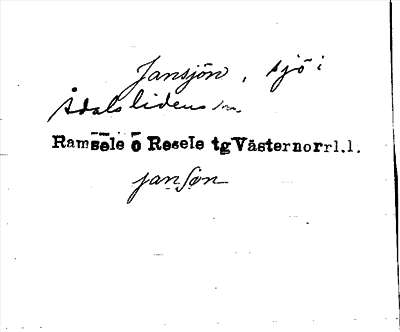 Jansjön, sjö i
Ådalslidens sn.
Ramsele o Resele tg Västernorrl.l.
jan$on